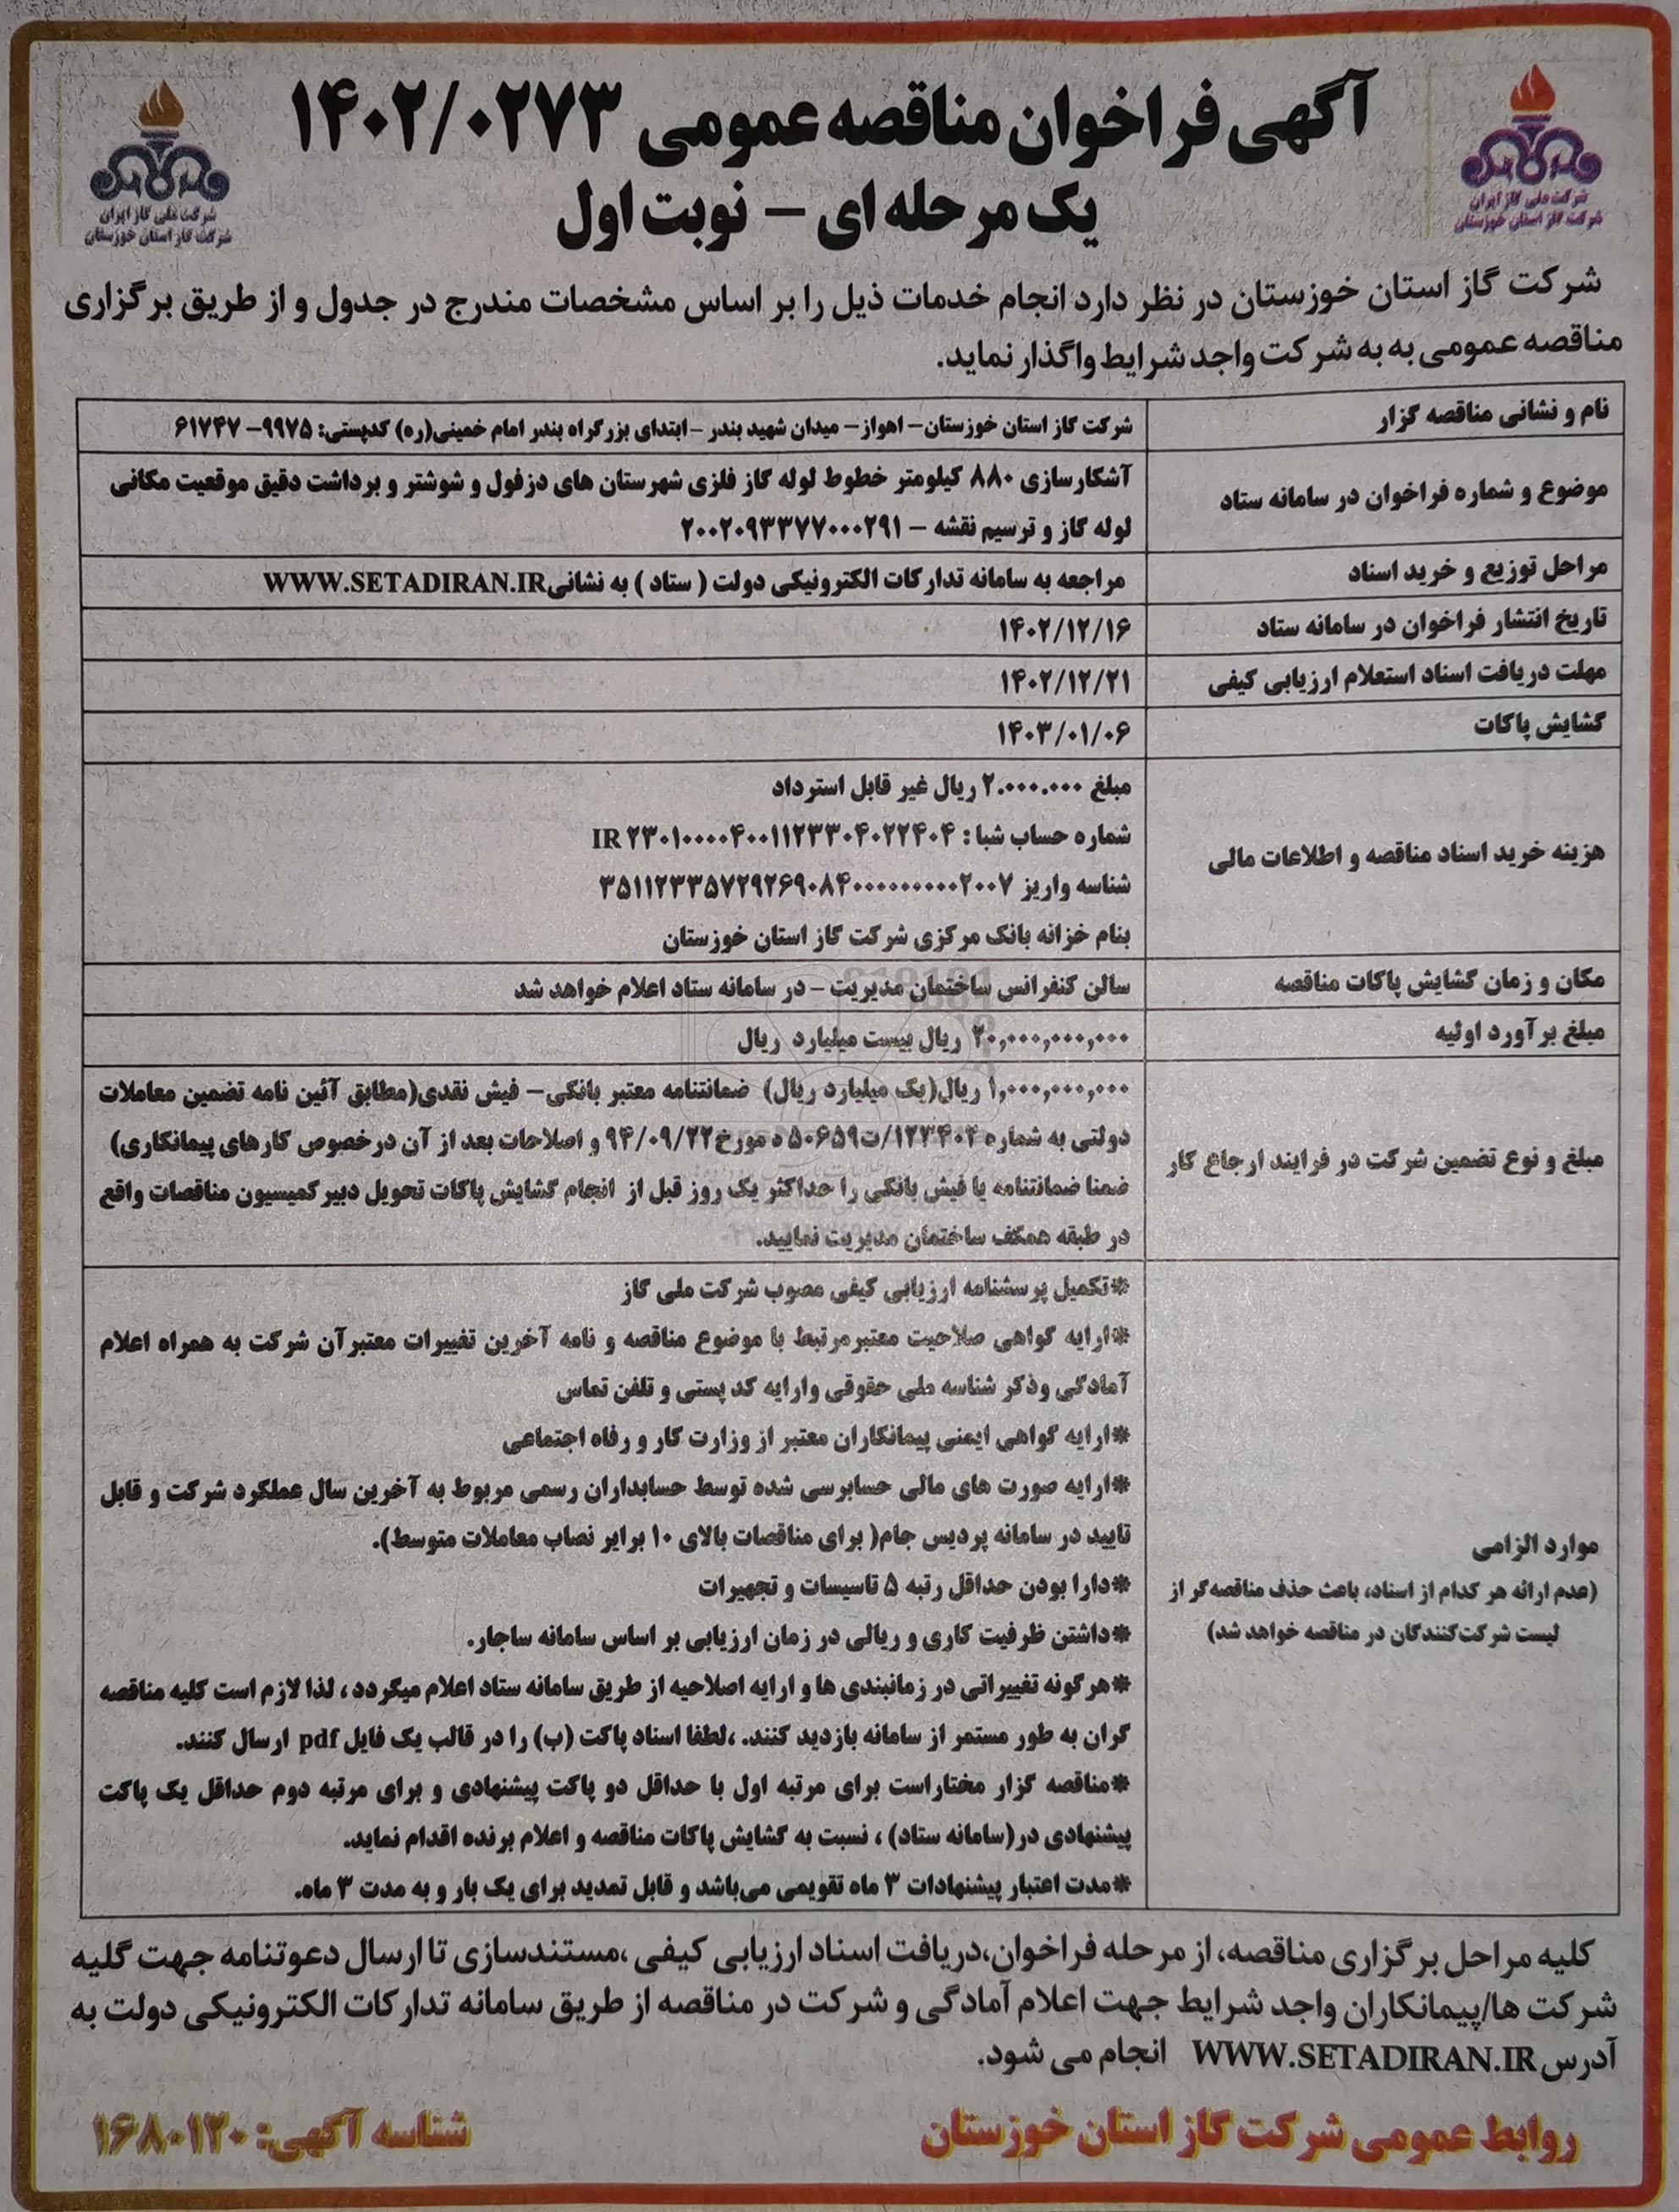 آگهی فراخوان مناقصه عمومی ۱۴۰۲/۰۲۷۳
یک مرحله ای – نوبت اول
شرکت ملی گاز ایران
شرکت گاز استان خوزستان
شرکت ملی گاز ایران
شرکت گاز استان خوزستان
شرکت گاز استان خوزستان در نظر دارد انجام خدمات ذیل را بر اساس مشخصات مندرج در جدول و از طریق برگزاری
مناقصه عمومی به به شرکت واجد شرایط واگذار نماید.
نام و نشانی مناقصه گزار
شرکت گاز استان خوزستان– اهواز– میدان شهید بندر –ابتدای بزرگراه بندر امام خمینی(ره) کدپستی: ۹۹۷۵– ۶۱۷۴۷
موضوع و شماره فراخوان در سامانه ستاد
آشکارسازی ۸۸۰ کیلومتر خطوط لوله گاز فلزی شهرستان های دزفول و شوشتر و برداشت دقیق موقعیت مکانی
لوله گاز و ترسیم نقشه – ۲۰۰۲۰۹۳۳۷۷۰۰۰۲۹۱
مراحل توزیع و خرید اسناد
مراجعه به سامانه تدارکات الکترونیکی دولت ( ستاد ) به نشانیWWW.SETADIRAN.IR
تاریخ انتشار فراخوان در سامانه ستاد
۱۴۰۲/۱۲/۱۶
مهلت دریافت اسناد استعلام ارزیابی کیفی
۱۴۰۲/۱۲/۲۱
گشایش پاکات
۱۴۰۳/۰۱/۰۶
هزینه خرید اسناد مناقصه و اطلاعات مالی
مبلغ ۲.۰۰۰.۰۰۰ ریال غیر قابل استرداد
شماره حساب شبا : IR ۲۳۰۱۰۰۰۰۴۰۰۱۱۲۳۳۰۴۰۲۲۴۰۴
شناسه واریز ۳۵۱۱۲۳۳۵۷۲۹۲۶۹۰۸۴۰۰۰۰۰۰۰۰۰۰۲۰۰۷
بنام خزانه بانک مرکزی شرکت گاز استان خوزستان
مکان و زمان گشایش پاکات مناقصه
سالن کنفرانس ساختمان مدیریت – در سامانه ستاد اعلام خواهد شد
مبلغ برآورد اولیه
۲۰,۰۰۰,۰۰۰,۰۰۰ ریال بیست میلیارد ریال
مبلغ و نوع تضمین شرکت در فرایند ارجاع کار
۱,۰۰۰,۰۰۰,۰۰۰ ریال(یک میلیارد ریال) ضمانتنامه معتبر بانکی– فیش نقدی(مطابق آئین نامه تضمین معاملات
دولتی به شماره ۱۲۳۴۰۲/ت۵۰۶۵۹ ه مورخ۹۴/۰۹/۲۲ و اصلاحات بعد از آن درخصوص کارهای پیمانکاری)
ضمنا ضمانتنامه یا فیش بانکی را حداکثر یک روز قبل از انجام گشایش پاکات تحویل دبیر کمیسیون مناقصات واقع
در طبقه همکف ساختمان مدیریت نمایید.
موارد الزامی
(عدم ارائه هر کدام از اسناد، باعث حذف مناقصه‌گر از
لیست شرکت‌کنندگان در مناقصه خواهد شد)
*تکمیل پرسشنامه ارزیابی کیفی مصوب شرکت ملی گاز
*ارایه گواهی صلاحیت معتبرمرتبط با موضوع مناقصه و نامه آخرین تغییرات معتبرآن شرکت به همراه اعلام
آمادگی وذکر شناسه ملی حقوقی وارایه کد پستی و تلفن تماس
*ارایه گواهی ایمنی پیمانکاران معتبر از وزارت کار و رفاه اجتماعی
*ارایه صورت های مالی حسابرسی شده توسط حسابداران رسمی مربوط به آخرین سال عملکرد شرکت و قابل
تایید در سامانه پردیس جام( برای مناقصات بالای ۱۰ برابر نصاب معاملات متوسط).
*دارا بودن حداقل رتبه ۵ تاسیسات و تجهیزات
*داشتن ظرفیت کاری و ریالی در زمان ارزیابی بر اساس سامانه ساجار.
*هرگونه تغییراتی در زمانبندی ها و ارایه اصلاحیه از طریق سامانه ستاد اعلام میگردد ، لذا لازم است کلیه مناقصه
گران به طور مستمر از سامانه بازدید کنند. ،لطفا اسناد پاکت (ب) را در قالب یک فایل pdf ارسال کنند.
*مناقصه گزار مختاراست برای مرتبه اول با حداقل دو پاکت پیشنهادی و برای مرتبه دوم حداقل یک پاکت
پیشنهادی در(سامانه ستاد) ، نسبت به گشایش پاکات مناقصه و اعلام برنده اقدام نماید.
*مدت اعتبار پیشنهادات ۳ ماه تقویمی می‌باشد و قابل تمدید برای یک بار و به مدت ۳ ماه.
کلیه مراحل برگزاری مناقصه، از مرحله فراخوان،دریافت اسناد ارزیابی کیفی ،مستندسازی تا ارسال دعوتنامه جهت گلیه
شرکت ها/پیمانکاران واجد شرایط جهت اعلام آمادگی و شرکت در مناقصه از طریق سامانه تدارکات الکترونیکی دولت به
آدرس WWW.SETADIRAN.IR انجام می شود.
روابط عمومی شرکت گاز استان خوزستان
شناسه آگهی: ۱۶۸۰۱۲۰